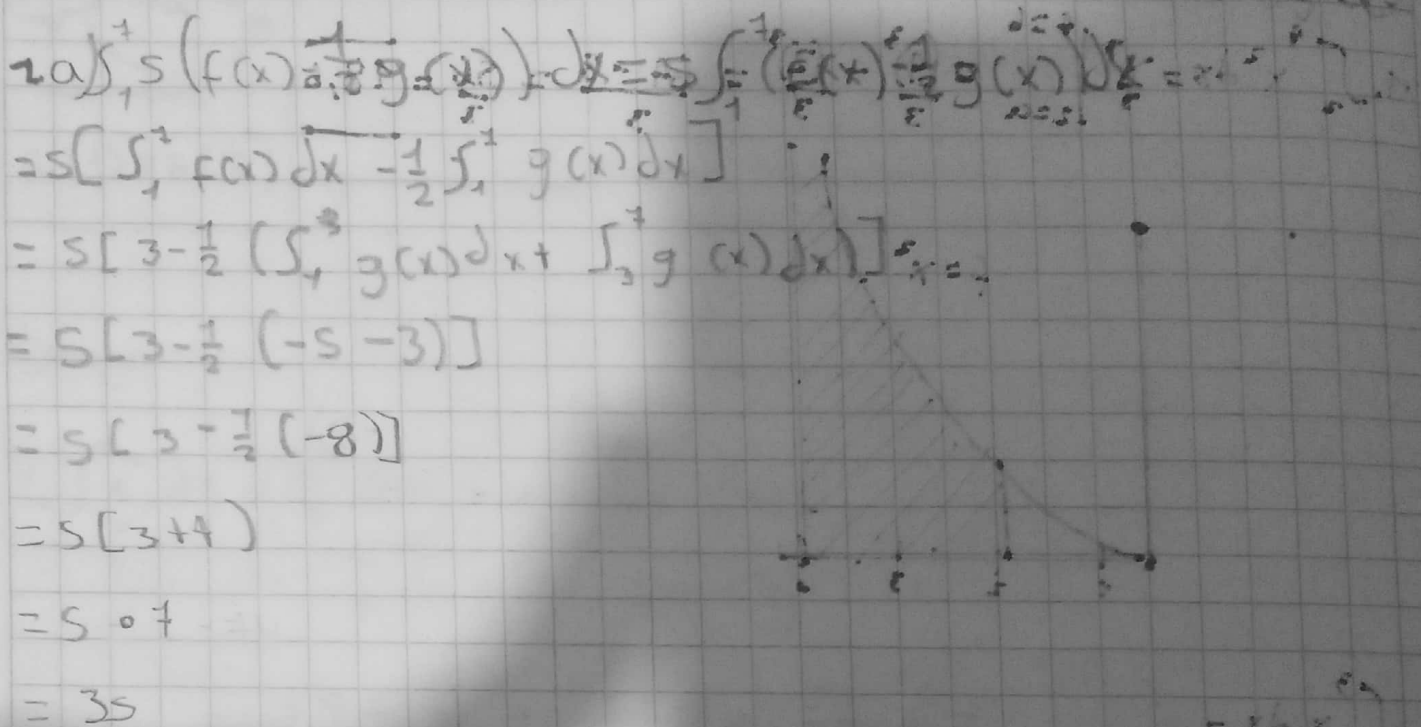 2a) ∫₁⁷ 5(f(x) - ½ g(x)) dx = 5 ∫₁⁷ (f(x) - ½ g(x)) dx =
= 5[∫₁⁷ f(x) dx - ½ ∫₁⁷ g(x) dx]
= 5[3 - ½ (∫₁³ g(x) dx + ∫₃⁷ g(x) dx)]
= 5[3 - ½ (-5 - 3)]
= 5[3 - ½ (-8)]
= 5[3+4)
= 5 · 7
= 35